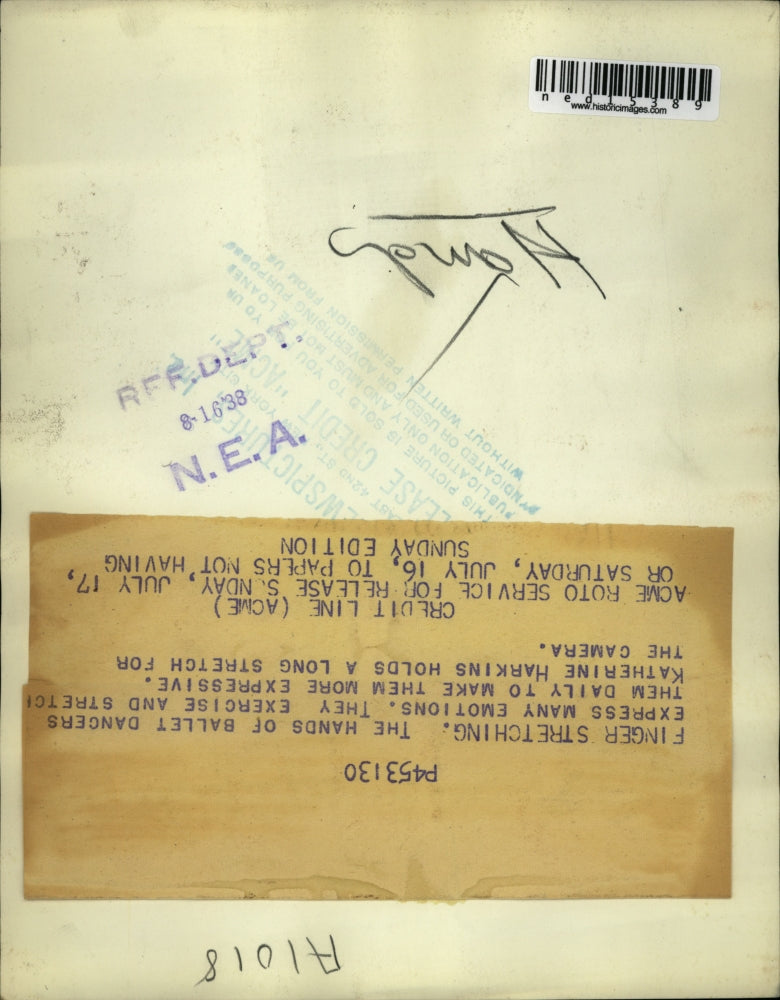 ned15389
www.historicimages.com
Hands
REF. DEPT.
8-16'38
N.E.A.
THIS PICTURE IS SOLD TO YOU
PUBLICATION ONLY AND MUST NOT BE LOANED
SYNDICATED OR USED FOR ADVERTISING PURPOSES
WITHOUT WRITTEN PERMISSION FROM US
CREDIT "ACME"
P453130
FINGER STRETCHING. THE HANDS OF BALLET DANCERS
EXPRESS MANY EMOTIONS. THEY EXERCISE AND STRETCH
THEM DAILY TO MAKE THEM MORE EXPRESSIVE.
KATHERINE HARKINS HOLDS A LONG STRETCH FOR
THE CAMERA.
CREDIT LINE (ACME)
ACME ROTO SERVICE FOR RELEASE SUNDAY, JULY 17,
OR SATURDAY, JULY 16, TO PAPERS NOT HAVING
SUNDAY EDITION
A1018